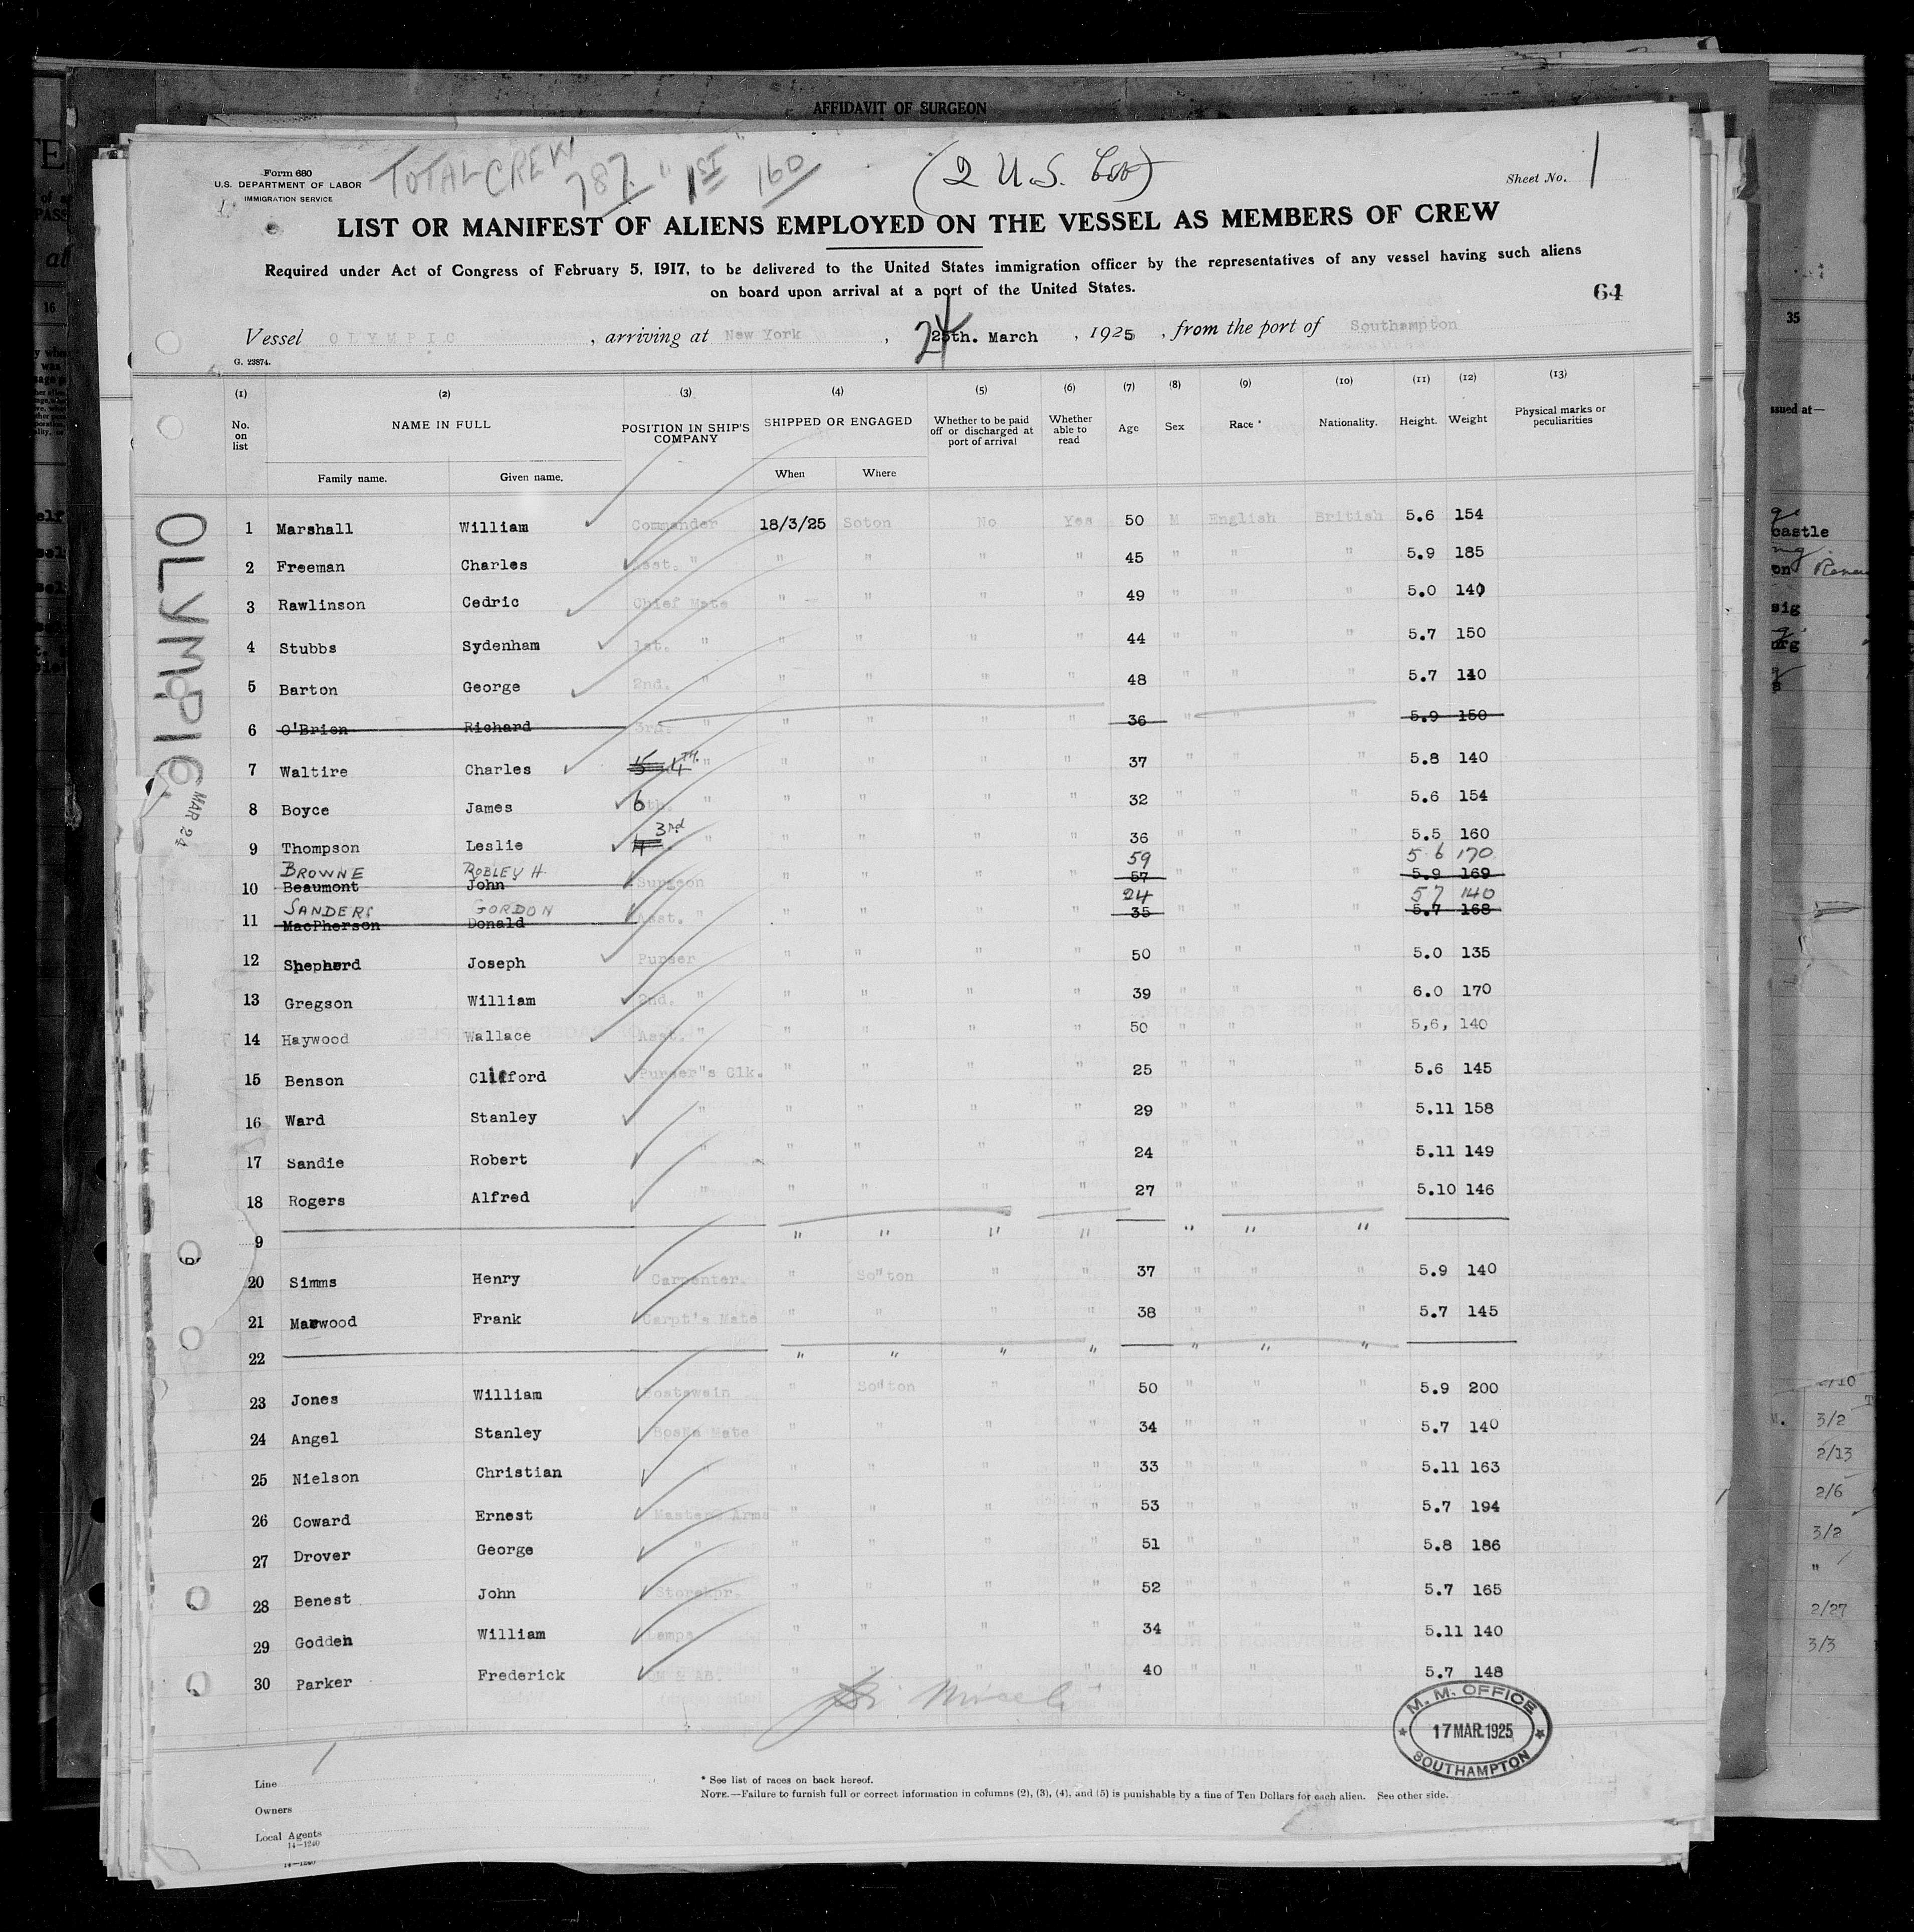 AFFIDAVIT OF SURGEON
Form 680
U.S. DEPARTMENT OF LABOR
IMMIGRATION SERVICE
TOTAL CREW 787. " 1ST " 160
(2 U.S. Cit)
Sheet No. 1
LIST OR MANIFEST OF ALIENS EMPLOYED ON THE VESSEL AS MEMBERS OF CREW
Required under Act of Congress of February 5, 1917, to be delivered to the United States immigration officer by the representatives of any vessel having such aliens
on board upon arrival at a port of the United States.
64
Vessel OLYMPIC , arriving at New York , 24 25th. March , 1925 , from the port of Southampton
G. 23874.
(1) (2) (3) (4) (5) (6) (7) (8) (9) (10) (11) (12) (13)
No. on list NAME IN FULL POSITION IN SHIP'S COMPANY SHIPPED OR ENGAGED Whether to be paid off or discharged at port of arrival Whether able to read Age Sex Race * Nationality. Height. Weight Physical marks or peculiarities
Family name. Given name. When Where
OLYMPIC
MAR 24
1 Marshall William Commander 18/3/25 Soton No Yes 50 M English British 5.6 154
2 Freeman Charles Asst. " " " " " 45 " " " 5.9 185
3 Rawlinson Cedric Chief Mate " " " " 49 " " " 5.0 140
4 Stubbs Sydenham 1st. " " " " " 44 " " " 5.7 150
5 Barton George 2nd. " " " " " 48 " " " 5.7 140
6 O'Brien Richard 3rd. " " " " " 36 " " " 5.9 150
7 Waltire Charles 5 4TH. " " " " " 37 " " " 5.8 140
8 Boyce James 6th. " " " " " 32 " " " 5.6 154
9 Thompson Leslie 4 3rd " " " " " 36 " " " 5.5 160
BROWNE ROBLEY H 59 5 6 170
10 Beaumont John Surgeon " " " " 57 " " " 5.9 169
SANDERS GORDON 24 5 7 140
11 MacPherson Donald Asst. " " " " " 35 " " " 5.7 168
12 Shepherd Joseph Purser " " " " 50 " " " 5.0 135
13 Gregson William 2nd. " " " " " 39 " " " 6.0 170
14 Haywood Wallace Asst. " " " " " 50 " " " 5,6, 140
15 Benson Clifford Purser"s Clk. " " " " 25 " " " 5.6 145
16 Ward Stanley " " " " " 29 " " " 5.11 158
17 Sandie Robert " " " " " 24 " " " 5.11 149
18 Rogers Alfred " " " " " 27 " " " 5.10 146
9 " " " " " " "
20 Simms Henry Carpenter. " So"ton " " 37 " " " 5.9 140
21 Marwood Frank Carpt's Mate " " " " 38 " " " 5.7 145
22 " " " " " " "
23 Jones William Boatswain " So"ton " " 50 " " " 5.9 200
24 Angel Stanley Bosns Mate " " " " 34 " " " 5.7 140
25 Nielson Christian " " " " " 33 " " " 5.11 163
26 Coward Ernest Master Arms " " " " 53 " " " 5.7 194
27 Drover George " " " " " 51 " " " 5.8 186
28 Benest John Storekpr. " " " " 52 " " " 5.7 165
29 Godden William Lamps " " " " 34 " " " 5.11 140
30 Parker Frederick QM & AB. " " " " 40 " " " 5.7 148
M. M. OFFICE
17 MAR. 1925
SOUTHAMPTON
Line
Owners
Local Agents
14—1240
14—1240
* See list of races on back hereof.
NOTE.—Failure to furnish full or correct information in columns (2), (3), (4), and (5) is punishable by a fine of Ten Dollars for each alien. See other side.
16
35
castle
3/2
2/13
2/6
3/2
"
2/27
3/3